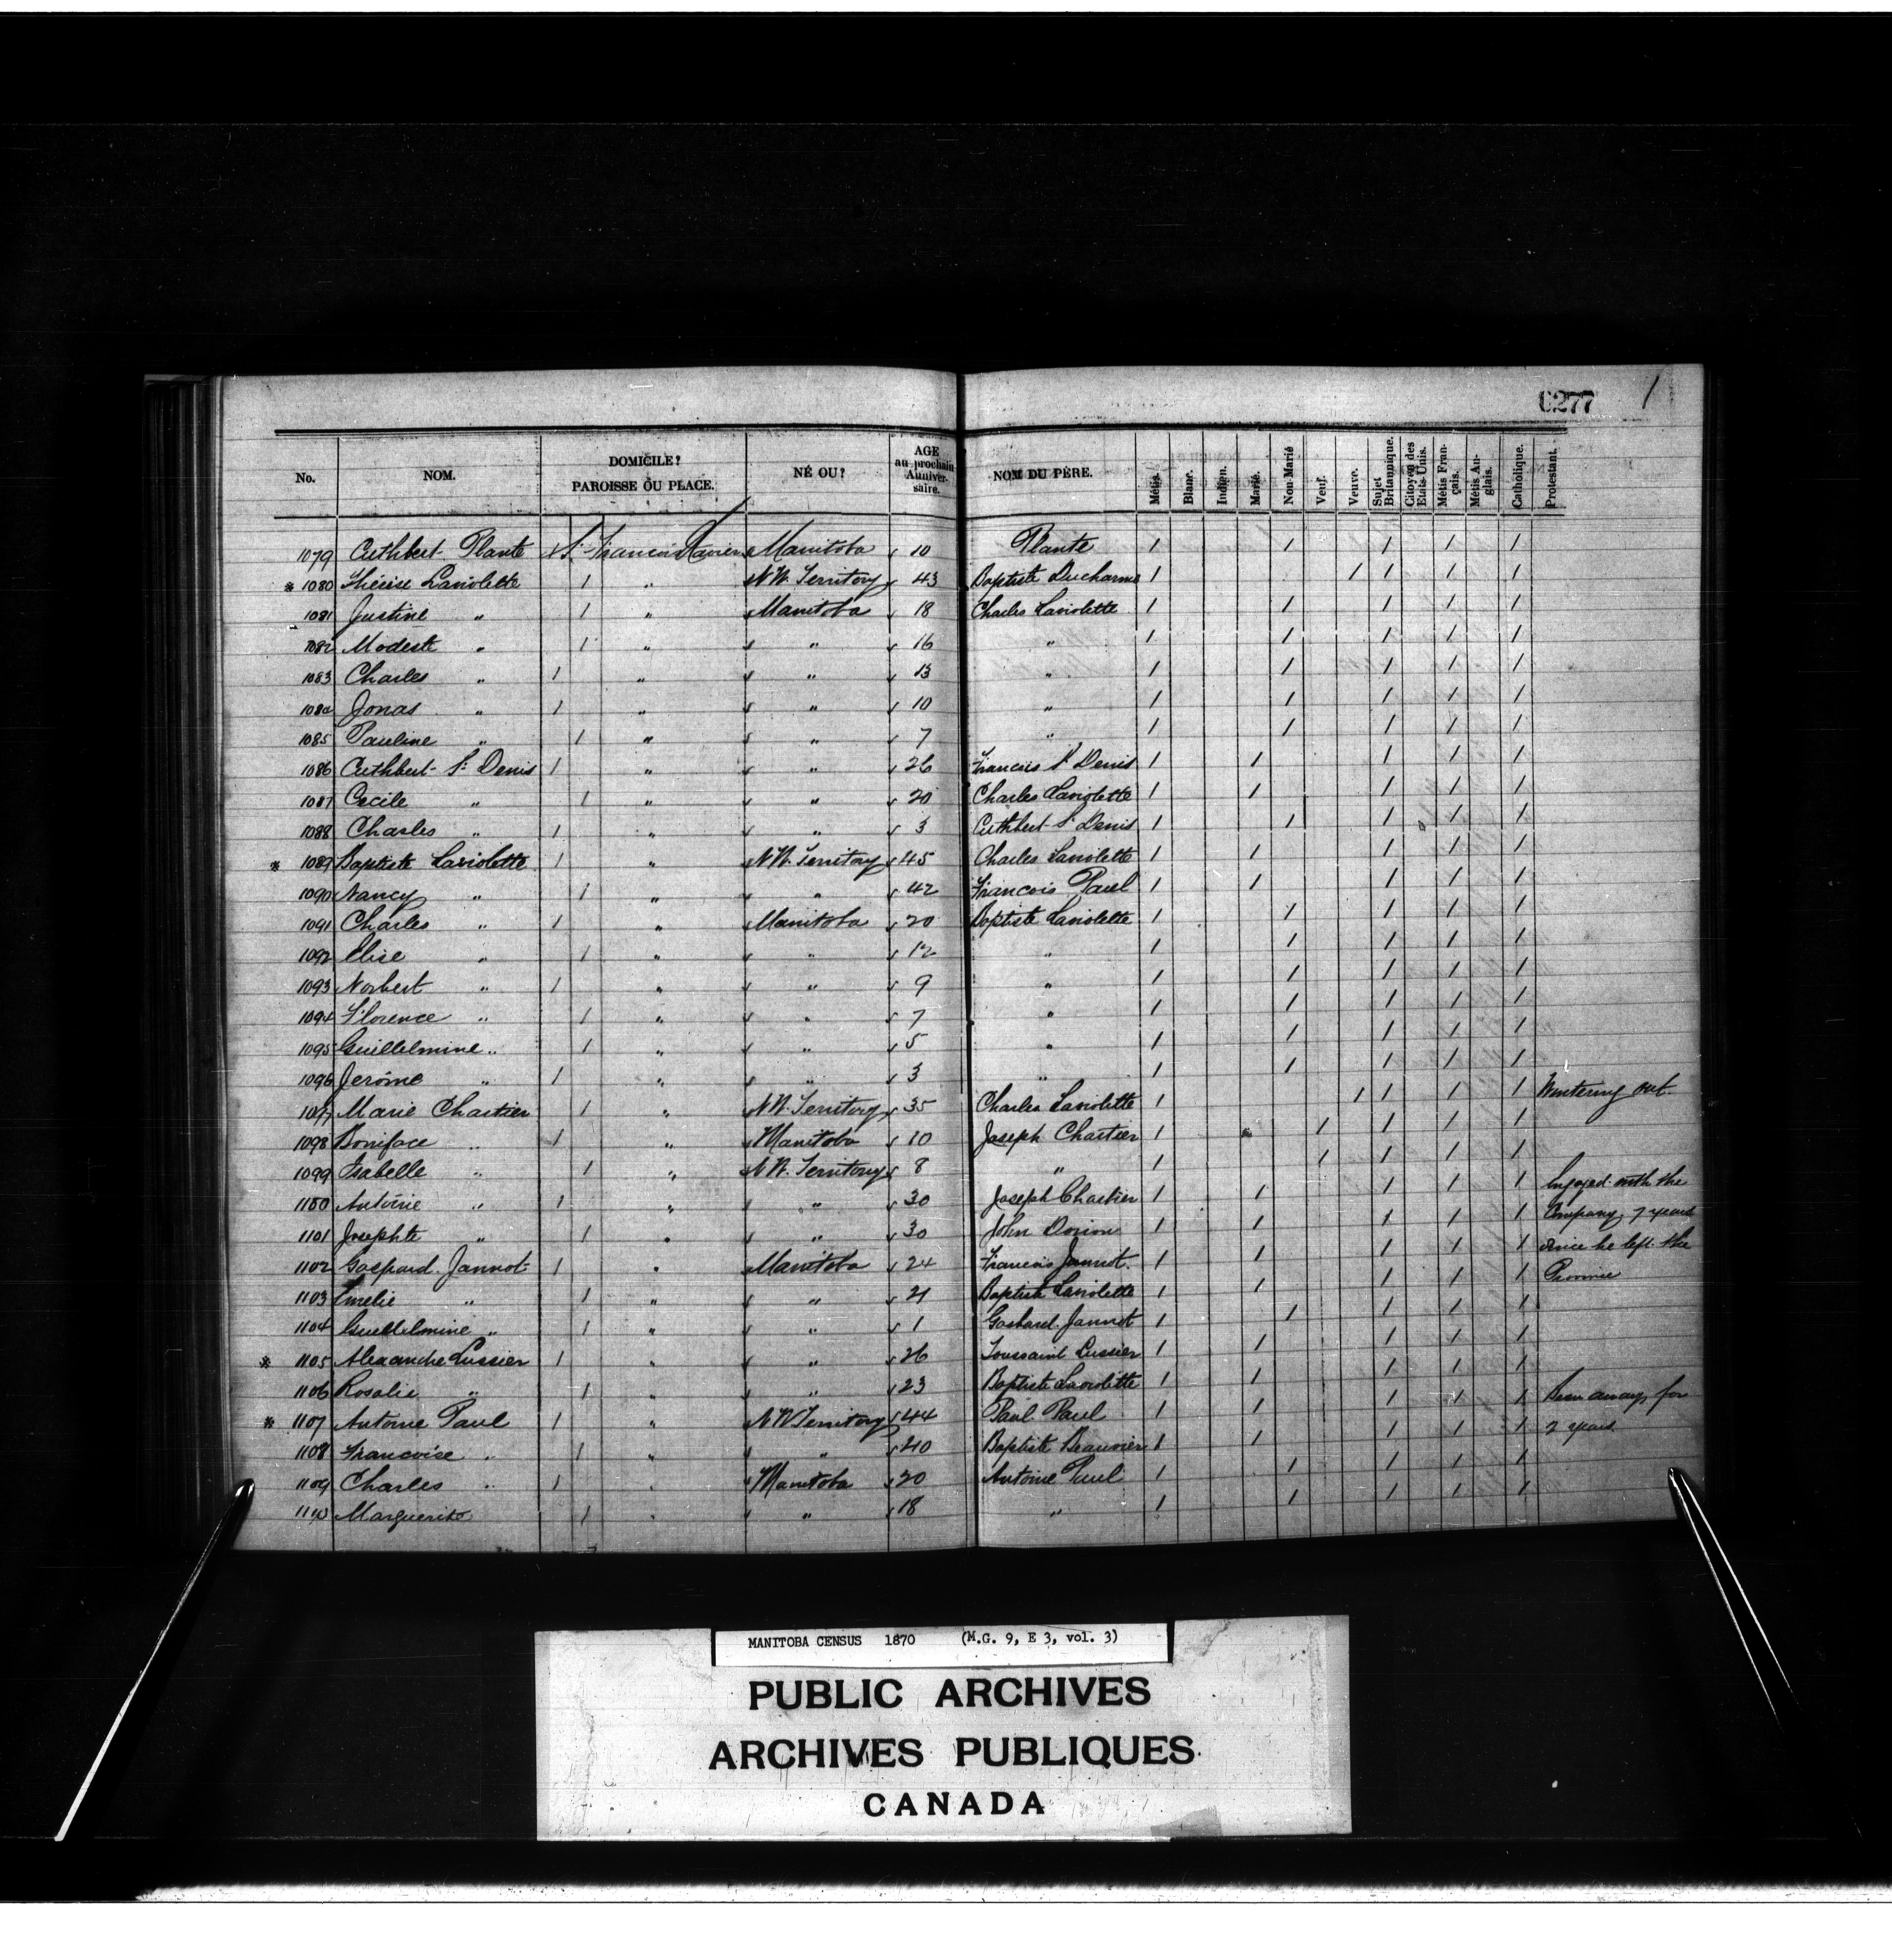 0277 /
No. NOM. DOMICILE? PAROISSE OU PLACE. NÉ OU? AGE au prochain Anniversaire. NOM DU PÈRE. Métis. Blanc. Indien. Marié. Non-Marié Veuf. Veuve. Sujet Britannique. Citoyen des Etats-Unis. Métis Français. Métis Anglais. Catholique. Protestant.
1079 Cuthbert Plante St. Francois Xavier Manitoba 10 Plante / / / / /
* 1080 Thérèse Laviolette / " N.W. Territory 43 Baptiste Ducharme / / / / /
1081 Justine " / " Manitoba 18 Charles Laviolette / / / / /
1082 Modeste " / " " 16 " / / / / /
1083 Charles " / " " 13 " / / / / /
1084 Jonas " / " " 10 " / / / / /
1085 Pauline " / " " 7 " / / / / /
1086 Cuthbert St. Denis / " " 26 Francois St. Denis / / / / /
1087 Cecile " / " " 20 Charles Laviolette / / / / /
1088 Charles " / " " 3 Cuthbert St. Denis / / / / /
* 1089 Baptiste Laviolette / " N.W. Territory 45 Charles Laviolette / / / / /
1090 Nancy " / " " 42 Francois Paul / / / / /
1091 Charles " / " Manitoba 20 Baptiste Laviolette / / / / /
1092 Elise " / " " 12 " / / / / /
1093 Norbert " / " " 9 " / / / / /
1094 Florence " / " " 7 " / / / / /
1095 Guillelmine " / " " 5 " / / / / /
1096 Jerôme " / " " 3 " / / / / /
1097 Marie Chartier / " N.W. Territory 35 Charles Laviolette / / / / / Wintering out.
1098 Boniface " / " Manitoba 10 Joseph Chartier / / / / /
1099 Isabelle " / " N.W. Territory 8 " / / / / /
1100 Antoine " / " " 30 Joseph Chartier / / / / / Engaged with the
1101 Josephte " / " " 30 John Dorion / / / / / Company, 7 years
1102 Gaspard Jannot / " Manitoba 24 Francois Jannot / / / / / since he left the
1103 Emelie " / " " 21 Baptiste Laviolette / / / / / Province
1104 Guillelmine " / " " 1 Gaspard Jannot / / / / /
* 1105 Alexandre Lussier / " " 26 Toussaint Lussier / / / / /
1106 Rosalie " / " " 23 Baptiste Laviolette / / / / /
* 1107 Antoine Paul / " N.W. Territory 44 Paul Paul / / / / / Been away for
1108 Francoise " / " " 40 Baptiste Beauvier / / / / / 2 years
1109 Charles " / " Manitoba 20 Antoine Paul / / / / /
1110 Marguerite / " " 18 " / / / / /
MANITOBA CENSUS 1870 (M.G. 9, E 3, vol. 3)
PUBLIC ARCHIVES
ARCHIVES PUBLIQUES
CANADA